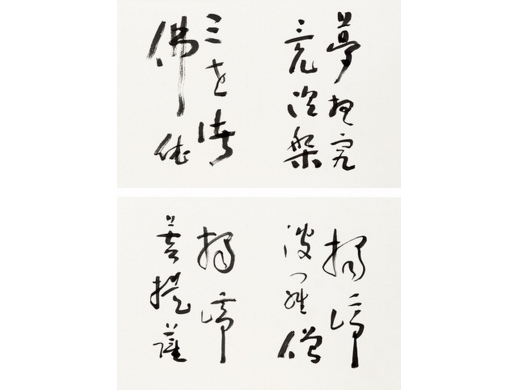 夢想究
竟涅槃
三世諸
佛依
揭諦
波羅僧
揭諦
菩提薩